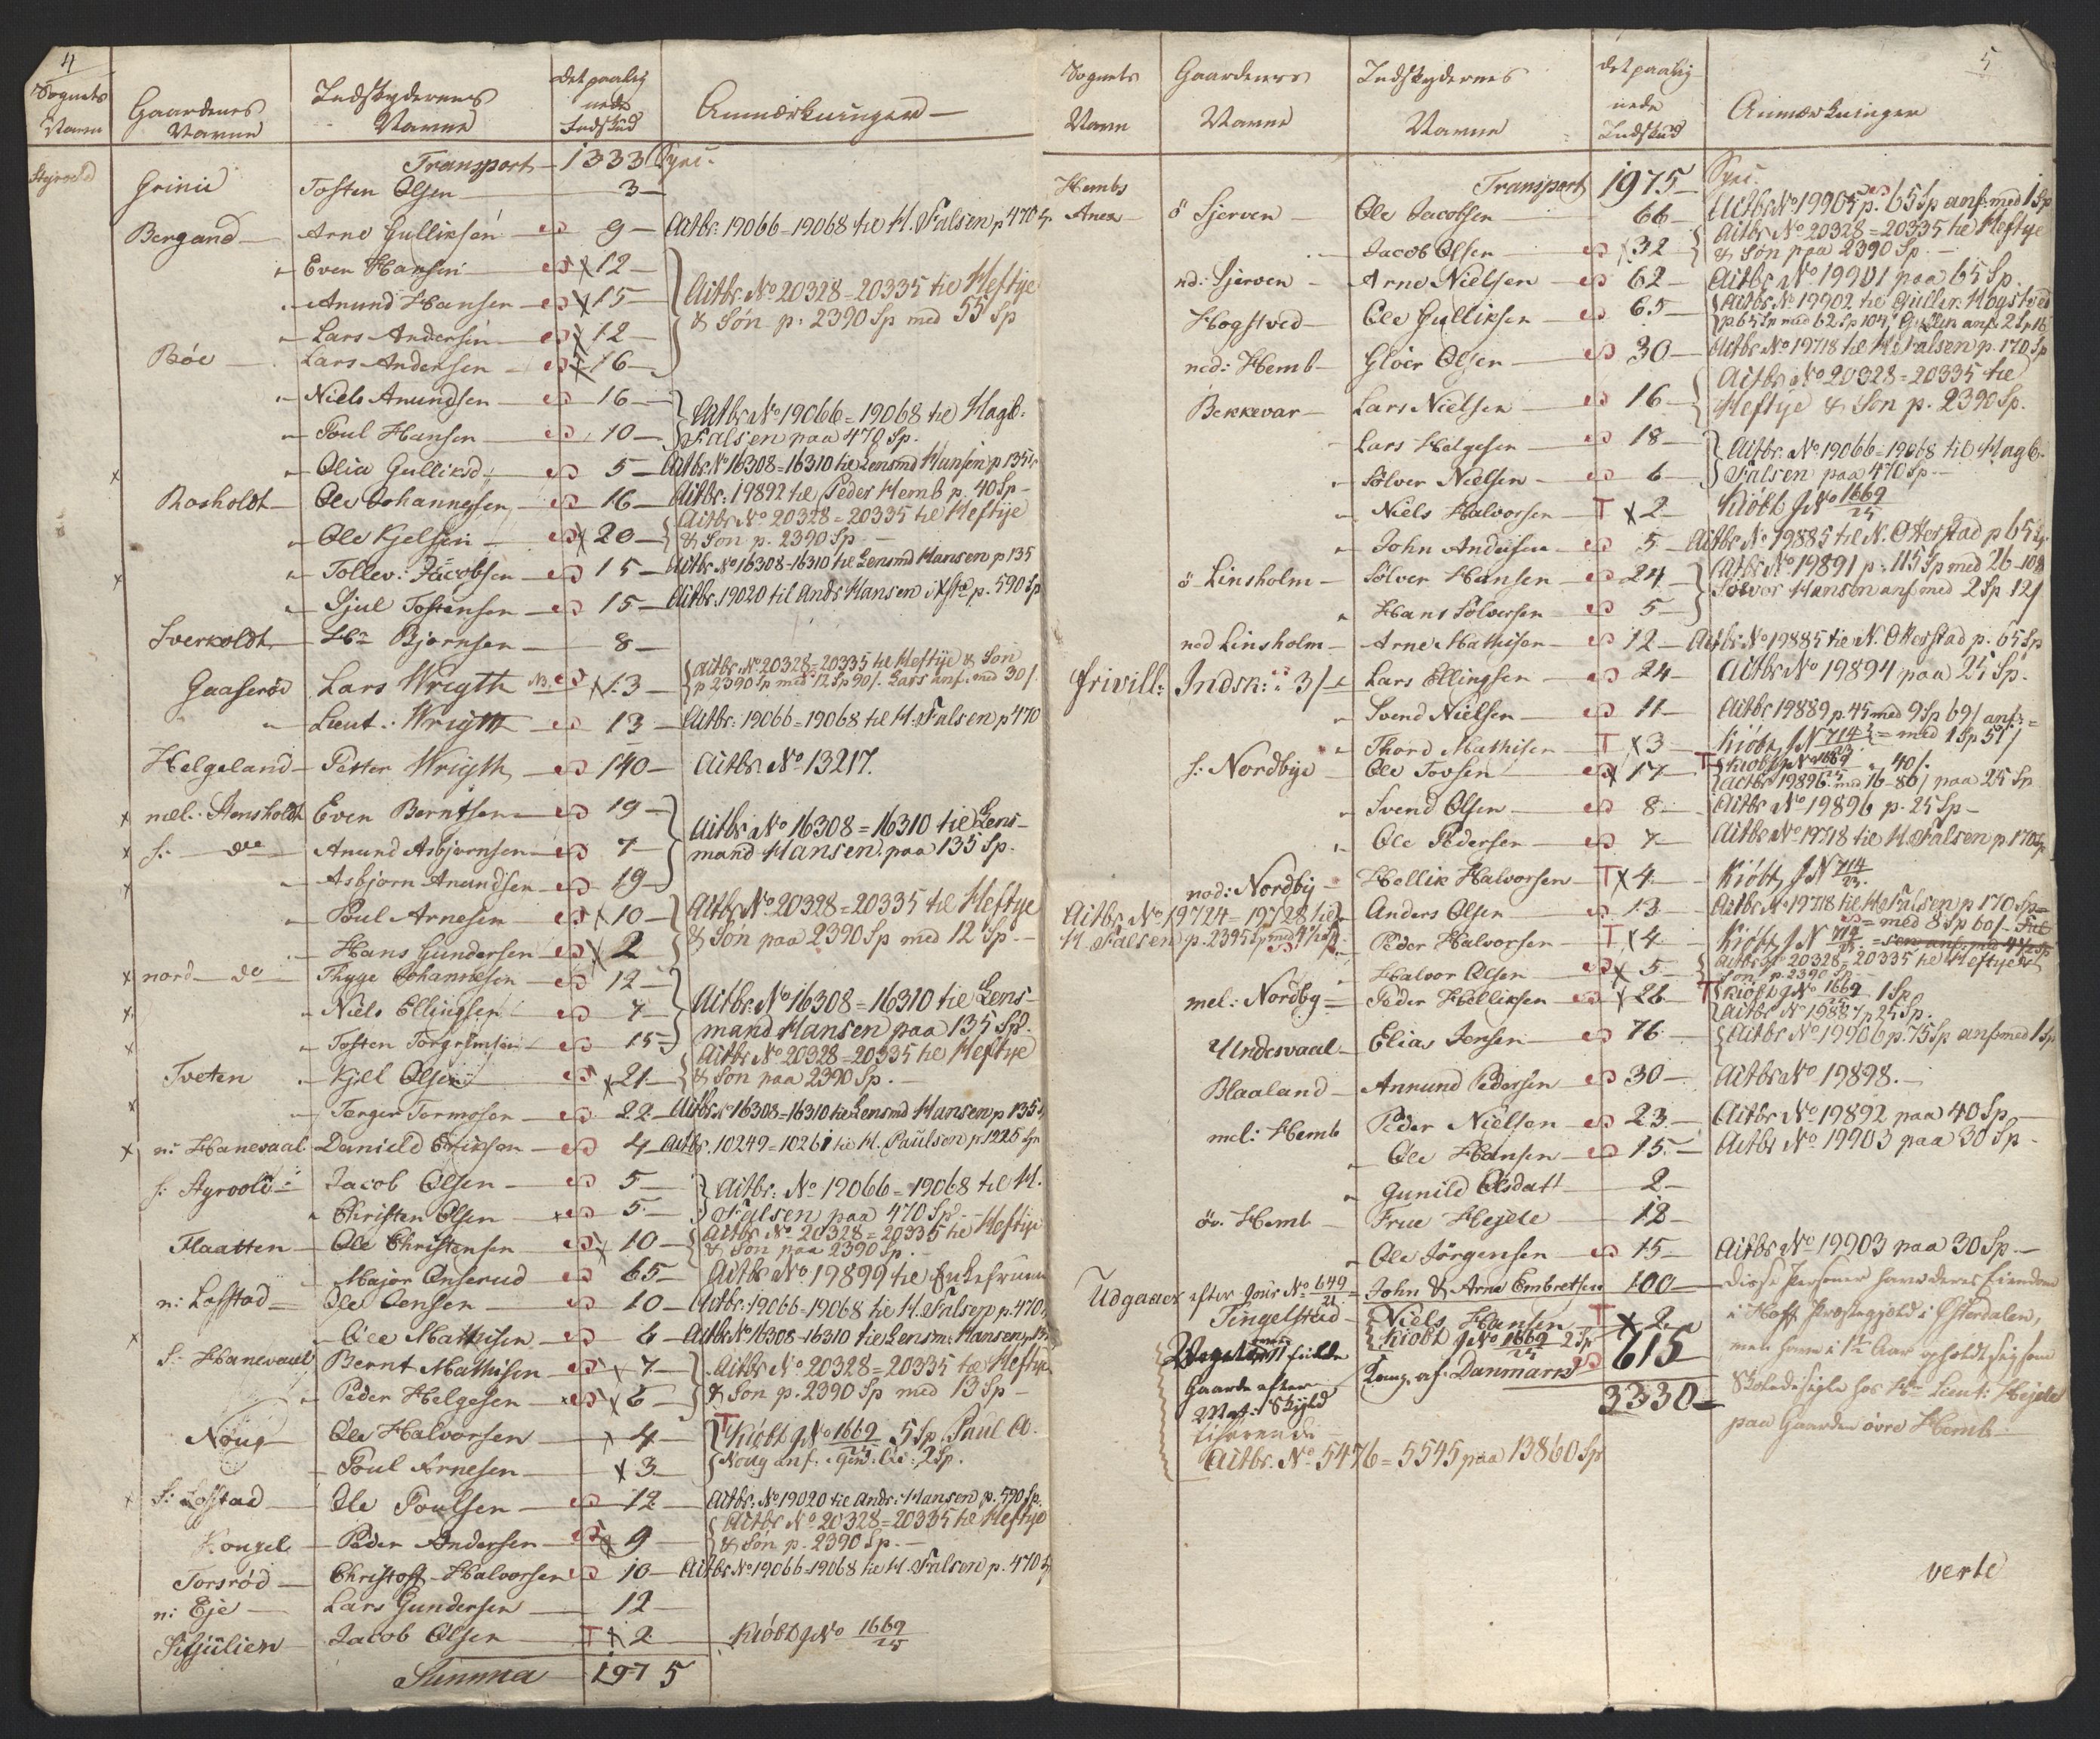 4
Sognets Navn | Gaardenes Navne | Indskydernes Navne | Det paalignede Indskud | Anmærkninger
Transport 1333 Spec:
Grinii Tosten Olsen 3
Bergand Arne Gulliksen 9 Actbr: 19066=19068 til H. Falsen p 470 Sp
" Even Hansen x 12
" Anund Hansen x 15 Actbr. No 20328=20335 til Heftye
" Lars Andersen x 12 & Søn p. 2390 Sp med 55 Sp
Böe Lars Andersen x 16
" Niels Anundsen 16 Actbr No 19066=19068 til Hagb:
" Poul Hansen 10 Falsen paa 470 Sp.
x " Olia Gulliksd: 5 Actbr. No 16308=16310 til Lensmd Hansen p 135
Rosholdt Ole Johannessen 16 Actbr: 19892 til Peder Hemb p. 40 Sp
" Ole Kjelsen x 20 Actbr No 20328=20335 til Heftye
& Søn p. 2390 Sp
" Tollev: Jacobsen 15 Actbr No 16308-16310 til Lensmd Hansen p 135
x " Sjul Tostensen 15 Actbr. 19020 til Ands Hansen p. 590 Sp
Sverkoldt Hr Bjørnsen 8
Gaaserød Lars Wrigth NB. x 13 Actbr. No 20328=20335 til Heftye & Søn
p 2390 Sp med 12 Sp 90/. Lars anf. md 30/.
" Lieut: Wrigth 13 Actbr: 19066=19068 til H. Falsen p 470
Helgeland Petter Wrigth 140 Actbr No 13217.
x mel: Stensholdt Even Berntsen 19
x s: do Anund Asbjørnsen 7 Actbr No 16308=16310 til Lens-
x " Asbjørn Anundsen 19 mand Hansen paa 135 Sp.
" Poul Arnesen x 10 Actbr No 20328=20335 til Heftye
" Hans Gundersen x 2 & Søn paa 2390 Sp med 12 Sp.
x nord do Thyge Johannesen 12
x " Niels Ellingsen 7 Actbr. No 16308=16310 til Lens-
x " Tosten Torgrimsen 15 mand Hansen paa 135 Sp.
Tveten Kjel Olsen x 21 Actbr No 20328=20335 til Heftye
& Søn paa 2390 Sp.
x " Torger Tormosen 22 Actbr. No 16308=16310 til Lensmd Hansen p 135
x n: Hanevaal Danield Eriksen 4 Actbr. 10249=10261 til H. Paulsen p 1225 Sp
s: Styrvold Jacob Olsen 5 Actbr: No 19066=19068 til H.
" Christen Olsen 5 Falsen paa 470 Sp
Flaatten Ole Christensen x 10 Actbr No 20328=20335 til Heftye
& Søn paa 2390 Sp.
" Major Anserud 65 Actbr No 19899 til Enkefruen
n: Lofstad Ole Jensen 10 Actbr: 19066=19068 til H. Falsen p. 470
x " Ole Mathisen 6 Actbr No 16308-16310 til Lensm: Hansen p 135
s: Hanevaal Bernt Mathisen x 7 Actbr No 20328=20335 til Heftye
" Peder Helgesen x 6 & Søn p. 2390 Sp med 13 Sp
Noug Ole Halvorsen x 4 T Kiöbt J No 1669/25 5 Sp. Paul A.
" Poul Arnesen x 3 Noug anf. 2 Sp.
x s: Lofstad Ole Poulsen 12 Actbr: No 19020 til Andr: Hansen p. 590 Sp.
Kongel Peder Andersen x 9 Actbr No 20328=20335 til Heftye
& Søn p. 2390 Sp.
Torsröd Christoff Halvorsen 10 Actbr No 19066=19068 til H. Falsen p. 470 Sp
n: Eje Lars Gundersen 12
Jacob Olsen T x 2 Kiöbt J No 1669/25
Summa 1975
5
Sognets Navn | Gaardenes Navne | Indskydernes Navne | Det paalignede Indskud | Anmærkninger
Transport 1975 Spec:
Hembs Anex ö Sjerven Ole Jacobsen 66 Actbr No 19905 p. 65 Sp anf. med 1 Sp
" Jacob Olsen x 32 Actbr No 20328=20335 til Heftye
& Søn paa 2390 Sp.
nd: Sjerven Arne Nielsen 62 Actbr No 19901 paa 65 Sp.
Hogstved Ole Gulliksen 65 Actbr. No 19902 til Gullik Hogstved
p 65 Sp med 62 Sp 104/ Gullik anf. 2 Sp 16
ned: Hemb Gloer Olsen 30 Actbr No 19718 til H. Falsen p. 170 Sp
Bekkevar Lars Nielsen 16 Actbr No 20328=20335 til
Heftye & Søn p. 2390 Sp.
Lars Helgesen 18 Actbr. No 19066=19068 til Hagb.
" Sølver Nielsen 6 Falsen paa 470 Sp
" Niels Halvorsen T x 2 Kiöbt J No 1669/25
" John Andersen 5 Actbr No 19885 til N. Otterstad p 65 Sp
ö Linsholm Sølver Hansen 24 Actbr No 19891 p. 115 Sp med 26-108
" Hans Sølversen 5 Sølver Hansen anf. med 2 Sp 12/
ned Linsholm Arne Mathisen 12 Actbr No 19885 til N. Otterstad p. 65 Sp
frivill: Indsk: 3/ Lars Ellingsen 24 Actbr No 19894 paa 25 Sp.
" Svend Nielsen 11 Actbr 19889 p. 45 med 9 Sp 69/ anf:=
" Thord Mathisen T x 3 Kiöbt J N 714/23 = med 1 Sp 51/
s: Nordbye Ole Tovsen x 17 T Kiöbt J No 1669/25 40/.
Actbr 19896 med 16-80/ paa 25 Sp
" Svend Olsen 8 Actbr No 19896 p. 25 Sp
" Ole Pedersen 7 Actbr No 19718 til H. Falsen p. 170 Sp
nod: Nordby Hellik Halvorsen T x 4 Kiöbt J N 714/23.
Actbr. No 19724=19728 til Anders Olsen 13 Actbr No 19718 til H. Falsen p 170 Sp
H. Falsen p. 2395 Sp med 4½ Sp. = med 8 Sp 60/.
Peder Halvorsen T x 4 Kiöbt J N 714/23.
" Halvor Olsen x 5 Actbr No 20328=20335 til Heftye &
Søn p. 2390 Sp
mel: Nordby Peder Helliksen x 26 T Kiöbt J No 1669/25 1 Sp
Actbr No 19887 p 25 Sp.
Undesvaal Elias Jensen 76 Actbr No 19906 p. 75 Sp anf. med 1 Sp
Blaaland Annund Pedersen 30 Actbr No 19898.
mel: Hemb Peder Nielsen 23 Actbr No 19892 paa 40 Sp
" Ole Hansen 15 Actbr No 19903 paa 30 Sp
" Gunild Olsdatt 2
öv. Hemb Frue Hejele 12
" Ole Jörgensen 15 Actbr No 19903 paa 30 Sp.
Udgaaer efter Jour No 649/21 = John & Arne Embretsen 100 Disse Personer have deres Eiendom
Tingelstad Niels Hansen T x 2 i Hoff Præstegjeld i Østerdalen,
Kiöbt J No 1669/25 2 Sp men have i 1½ Aar opholdt sig som
Gaarde efter Mat: Skyld Kong. af: Danmark 615
3330 hos Hr Lieut: Hejele
paa Gaarden øvre Hemb.
Actbr. No 5476=5545 paa 13860 Sp
verte